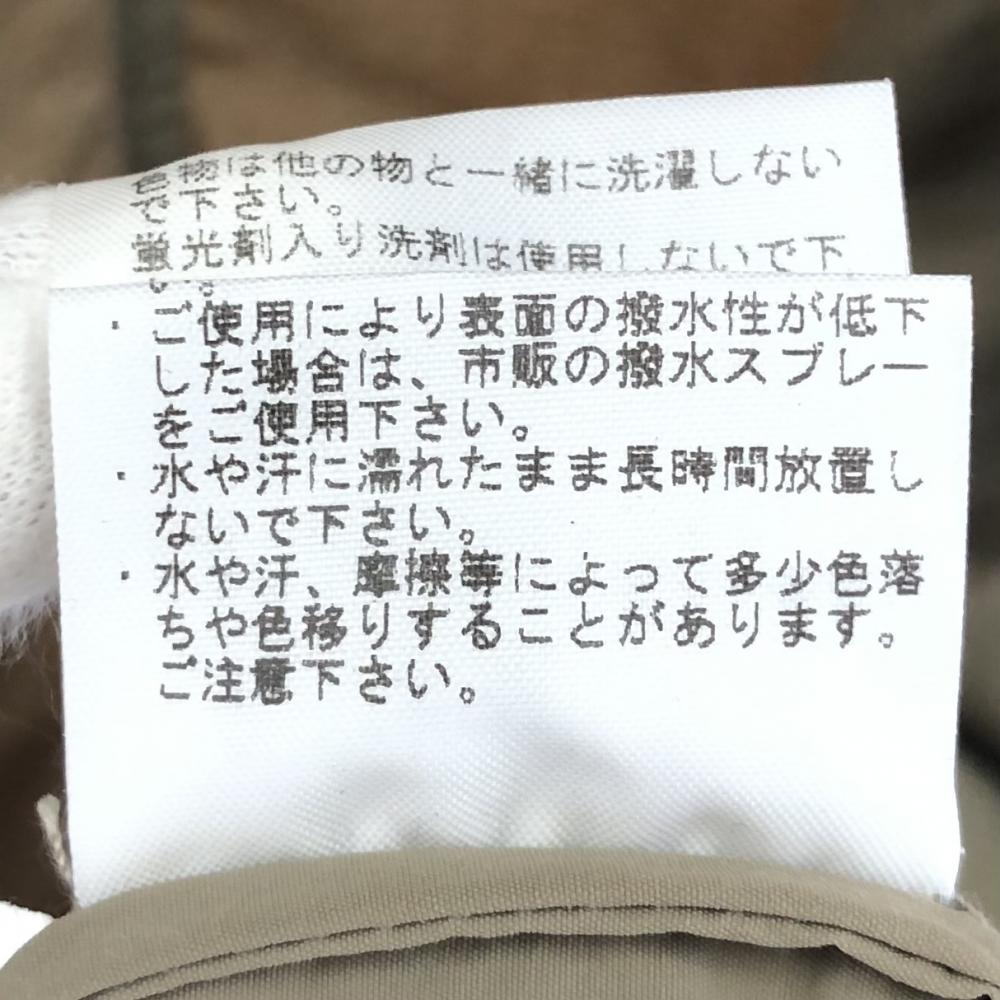 色物は他の物と一緒に洗濯しない
で下さい。
蛍光剤入り洗剤は使用しないで下
・ご使用により表面の撥水性が低下
した場合は、市販の撥水スプレー
をご使用下さい。
・水や汗に濡れたまま長時間放置し
ないで下さい。
・水や汗、摩擦等によって多少色落
ちや色移りすることがあります。
ご注意下さい。